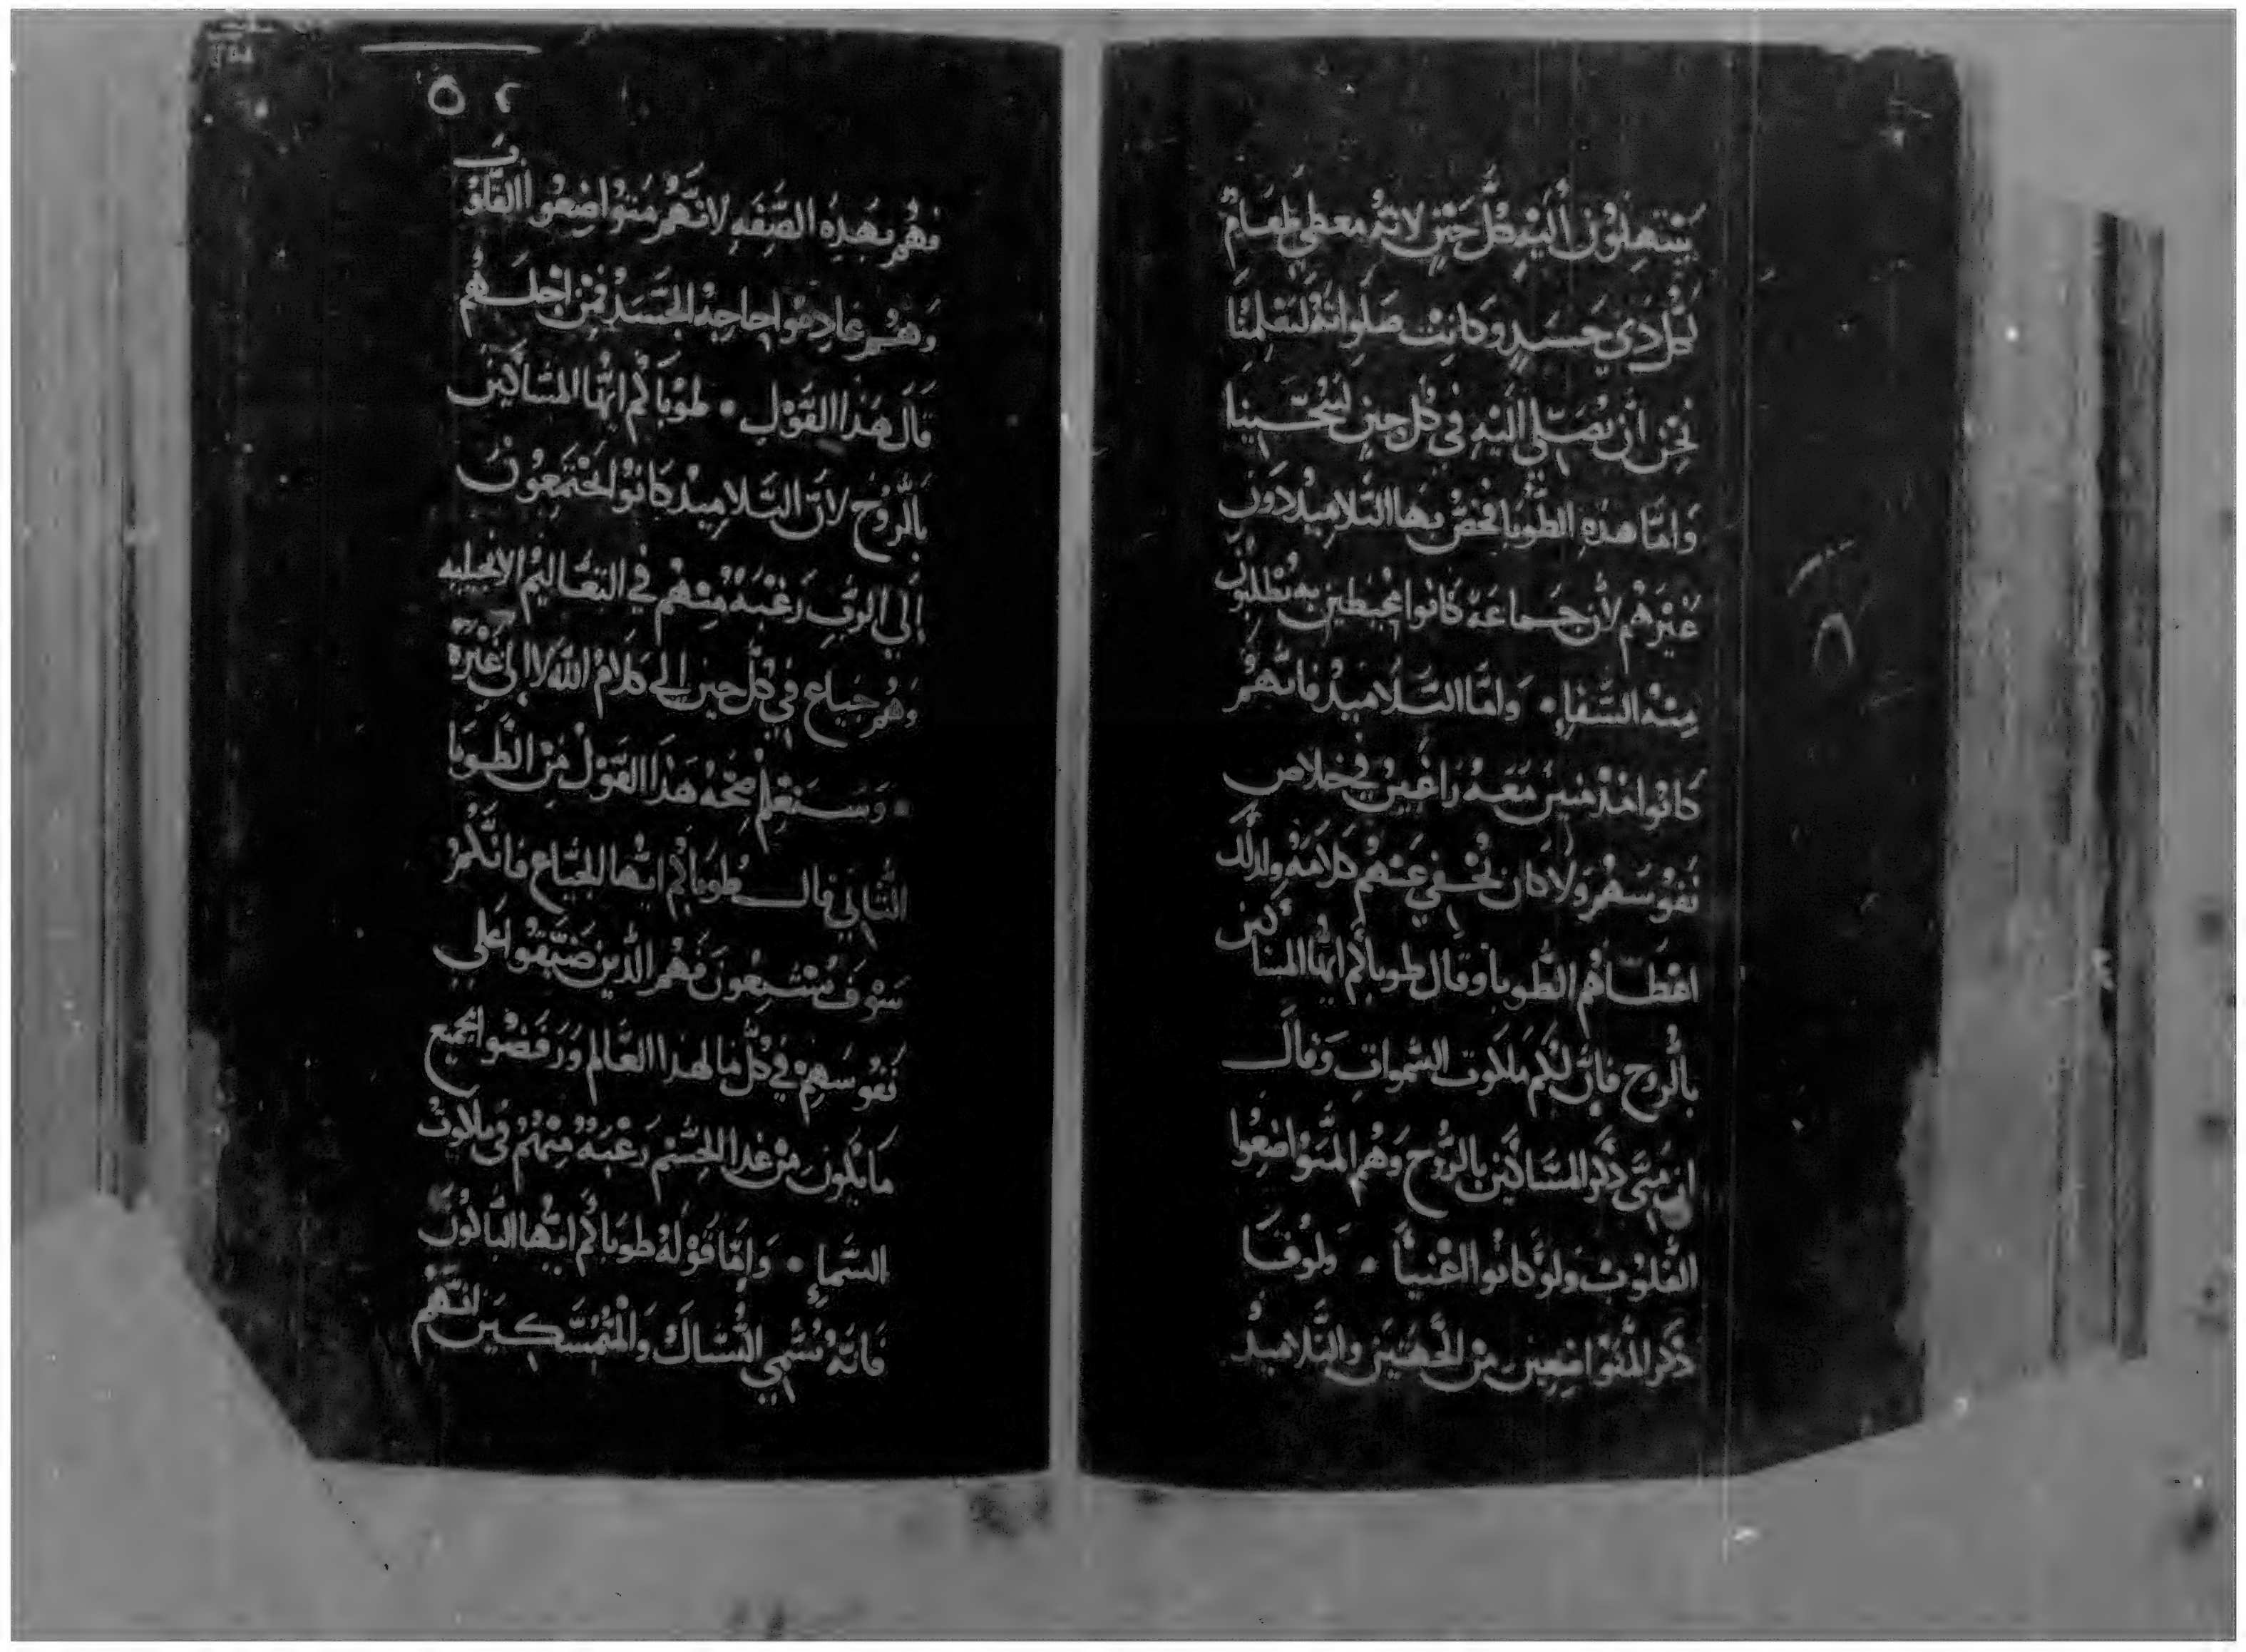 يبتهلون اليه كل حين لانه معطي طعام
لكل دي جسد وكانت صلواته لتعلمنا
نحن ان نصلي اليه في كل حين
واما هده الطوبا فخص بها التلاميد دون
غيرهم لان جماعة كانوا محيطين به يطلبون
منه الشفاء • واما التلاميد فانهم
كانوا معه راغبين في خلاص
نفوسهم ولا كان نخفي عنهم كلامه ولدلك
اعطاهم الطوبا وقال طوباكم ايها المساكين
بالروح فان لكم ملكوت السموات وقال
ان متى دكر المساكين بالروح وهم المتواضعوا
القلوب ولو كانوا اغنيا • ولوقا
دكر المتواضعين من والتلاميد
٥٢
فهم بهده الصفه لانهم متواضعوا القلوب
وهم عادموا حاجه الجسد فمن اجلهم
قال هدا القول • طوباكم ايها المساكين
بالروح لان التلاميد كانوا يجتمعون
الي الرب رغبة منهم في التعاليم الانجيليه
وهم جياع في كل حين الي كلام الله لا الي غيره
• وستعلم صحه هدا القول من الطوبا
الثاني قال طوباكم ايها الجياع فانكم
سوف تشبعون فهم الدين ضيقوا علي
نفوسهم في كل ما لهدا العالم ورفضوا جميع
ما يكون من غدا الجسم رغبة منهم في ملكوت
السماء • واما قوله طوباكم ايها الباكون
فانه يسمي النساك والمتمسكين لانهم